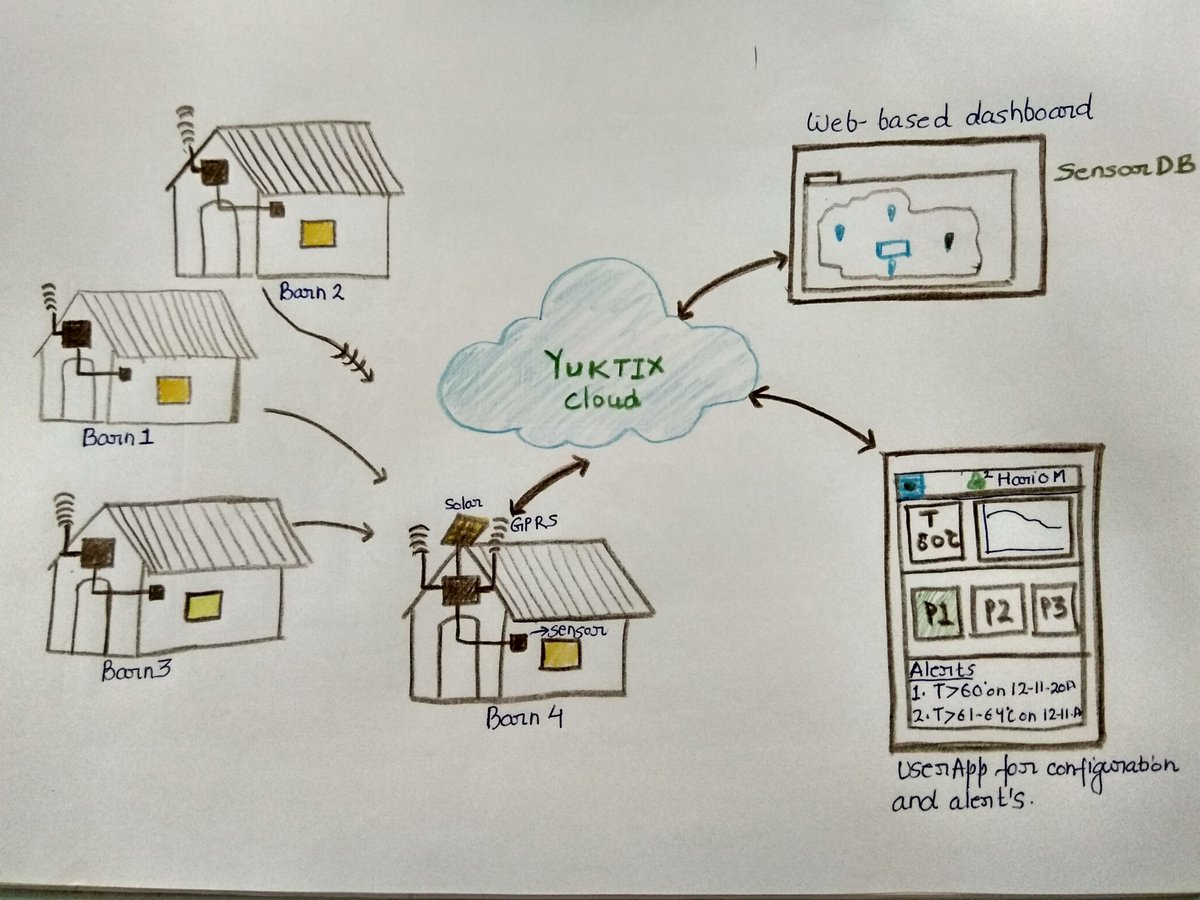 Web-based dashboard
SensorDB
Barn 2
YUKTIX
cloud
Barn 1
Solar
GPRS
→sensor
Barn3
Barn 4
2 Hario M
T
80°C
P1 P2 P3
Alerts
1. T>60° on 12-11-
2. T>61-64°C on 12-11-
UserApp for configuration
and alert's.